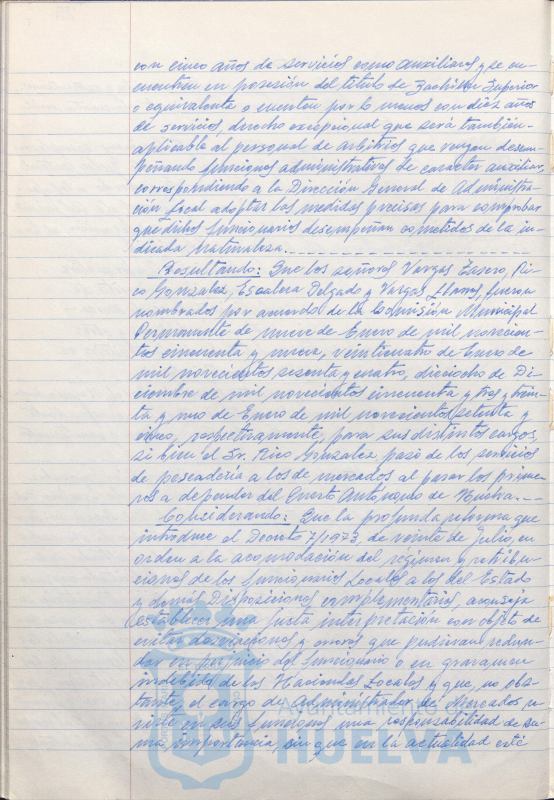 con cinco años de servicios como auxiliares y se en-
cuentren en posesión del titulo de Bachiller Superior
o equivalente o cuenten por lo menos con diez años
de servicios, derecho excepcional que será también
aplicable al personal de arbitrios que vengan desem-
peñando funciones administrativas de caracter auxiliar,
correspondiendo a la Dirección General de Administra-
ción Local adoptar las medidas precisas para comprobar
que dichos funcionarios desempeñan cometidos de la in-
dicada naturaleza.
Resultando: Que los señores Vargas Casero, Ri-
co Gonzalez, Escalera Delgado y Vargas Llanos, fueron
nombrados por acuerdo de la Comisión Municipal
Permanente de nueve de Enero de mil novecien-
tos cincuenta y nueve, veinticuatro de Enero de
mil novecientos sesenta y cuatro, dieciocho de Di-
ciembre de mil novecientos cincuenta y tres y trein-
ta y uno de Enero de mil novecientos setenta y
cinco, respectivamente, para sus distintos cargos,
si bien el Sr. Rico Gonzalez pasó de los servicios
de pescadería a los de mercados al pasar los prime-
ros a depender del Puerto Autónomo de Huelva.
Considerando: Que la profunda reforma que
introduce el Decreto 7/1973, de veinte de Julio, en
orden a la acomodación del régimen y retribu-
ciones de los funcionarios Locales a los del Estado
y demás Disposiciones complementarias, aconseja
establecer una justa interpretación con objeto de
evitar desviaciones y errores que pudieran redun-
dar en perjuicio del funcionario o en gravamen
indebido de las Haciendas Locales y que, no obs-
tante, el cargo de Administrador de Mercados re-
viste en sus funciones una responsabilidad de su-
ma importancia, sin que en la actualidad esté
HUELVA